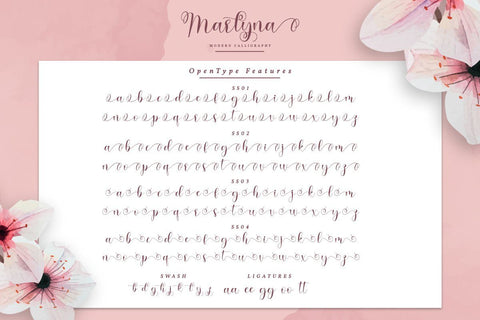 Martyna
MODERN CALLIGRAPHY
OpenType Features
SS01
a b c d e f g h i j k l m
n o p q r s t u v w x y z
SS02
a b c d e f g h i j k l m
n o p q r s t u v w x y z
SS03
a b c d e f g h i j k l m
n o p q r s t u v w x y z
SS04
a b c d e f g h i j k l m
n o p q r s t u v w x y z
SWASH LIGATURES
b d g h j k l y z aa ee gg oo tt